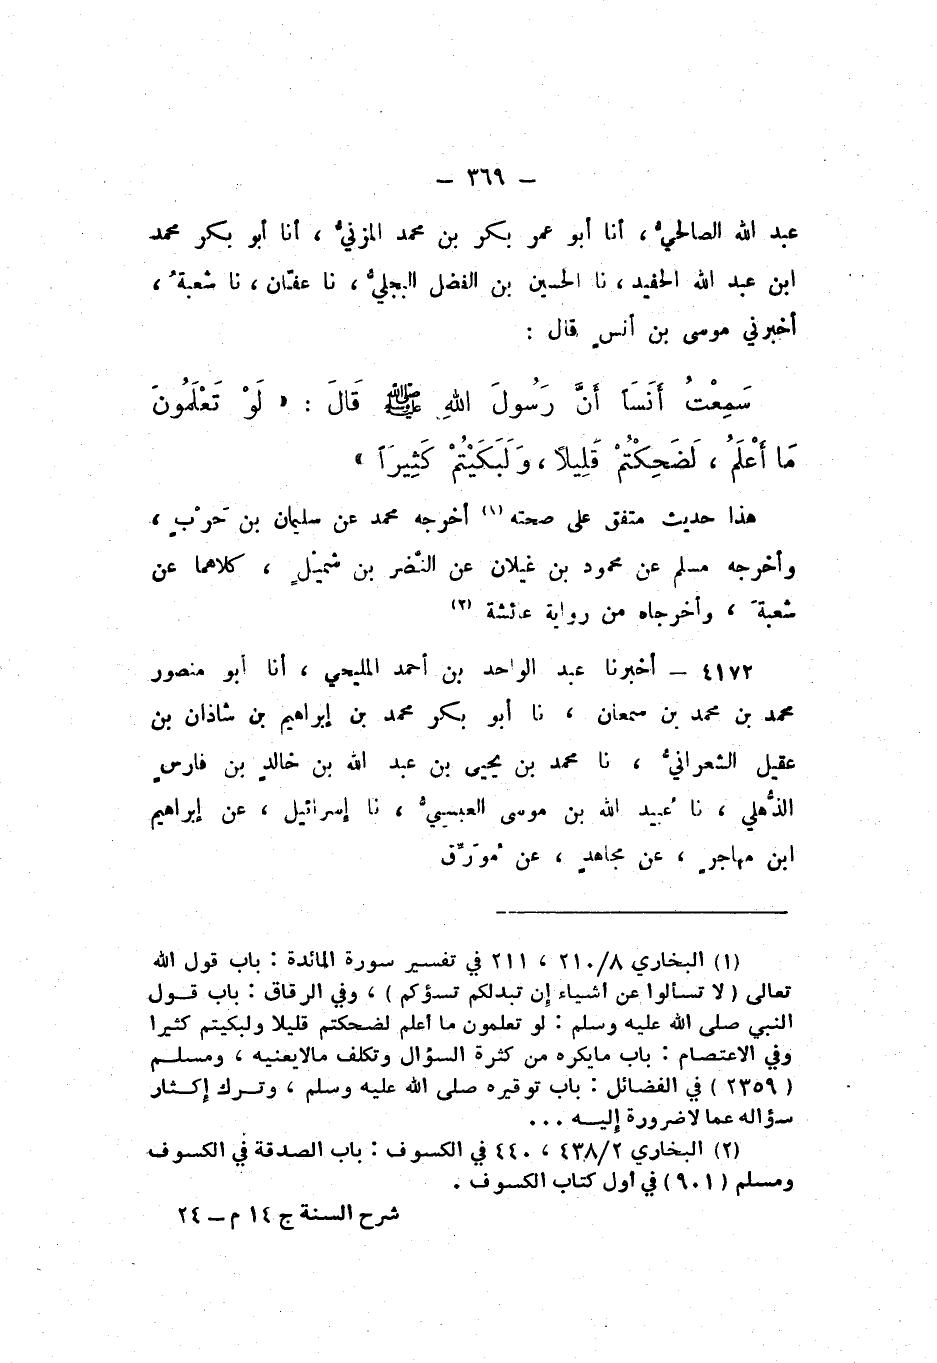 – ٣٦٩ –
عبد الله الصالحيُّ ، أنا أبو عمر بكر بن محمد المزنيُّ ، أنا أبو بكر محمد
ابن عبد الله الحفيد ، نا الحسين بن الفضل البجليُّ ، نا عفّان ، نا شعبةُ ،
أخبرني موسى بن أنسٍ قال :
سَمِعْتُ أَنَسَاً أَنَّ رَسُولَ اللهِ ﷺ قَالَ : « لَوْ تَعْلَمُونَ
مَا أَعْلَمُ ، لَضَحِكْتُمْ قَلِيلاً ، وَلَبَكَيْتُمْ كَثِيرَاً »
هذا حديث متفق على صحته (١) أخرجه محمد عن سليمان بن حَرْبٍ ،
وأخرجه مسلم عن محمود بن غيلان عن النَّضر بن شميْلٍ ، كلاهما عن
شعبةَ ، وأخرجاه من رواية عائشة (٢)
٤١٧٢ – أخبرنا عبد الواحد بن أحمد المليحي ، أنا أبو منصور
محمد بن محمد بن سمعان ، نا أبو بكر محمد بن إبراهيم بن شاذان بن
عقيل الشعرانيُّ ، نا محمد بن يحيى بن عبد الله بن خالدٍ بن فارسٍ
الذُّهلي ، نا عُبيد الله بن موسى العبسيُّ ، نا إسرائيل ، عن إبراهيم
ابن مهاجرٍ ، عن مجاهدٍ ، عن مُوَرِّق
(١) البخاري ٢١٠/٨ ، ٢١١ في تفسير سورة المائدة : باب قول الله
تعالى ( لا تسألوا عن أشياء إن تبدلكم تسؤكم ) ، وفي الرقاق : باب قول
النبي صلى الله عليه وسلم : لو تعلمون ما أعلم لضحكتم قليلا ولبكيتم كثيرا
وفي الاعتصام : باب مايكره من كثرة السؤال وتكلف مالايعنيه ، ومسلم
( ٢٣٥٩ ) في الفضائل : باب توقيره صلى الله عليه وسلم ، وترك إكثار
سؤاله عما لاضرورة إليه ...
(٢) البخاري ٤٣٨/٢ ، ٤٤٠ في الكسوف : باب الصدقة في الكسوف
ومسلم ( ٩٠١ ) في أول كتاب الكسوف .
شرح السنة ج ١٤ م – ٢٤